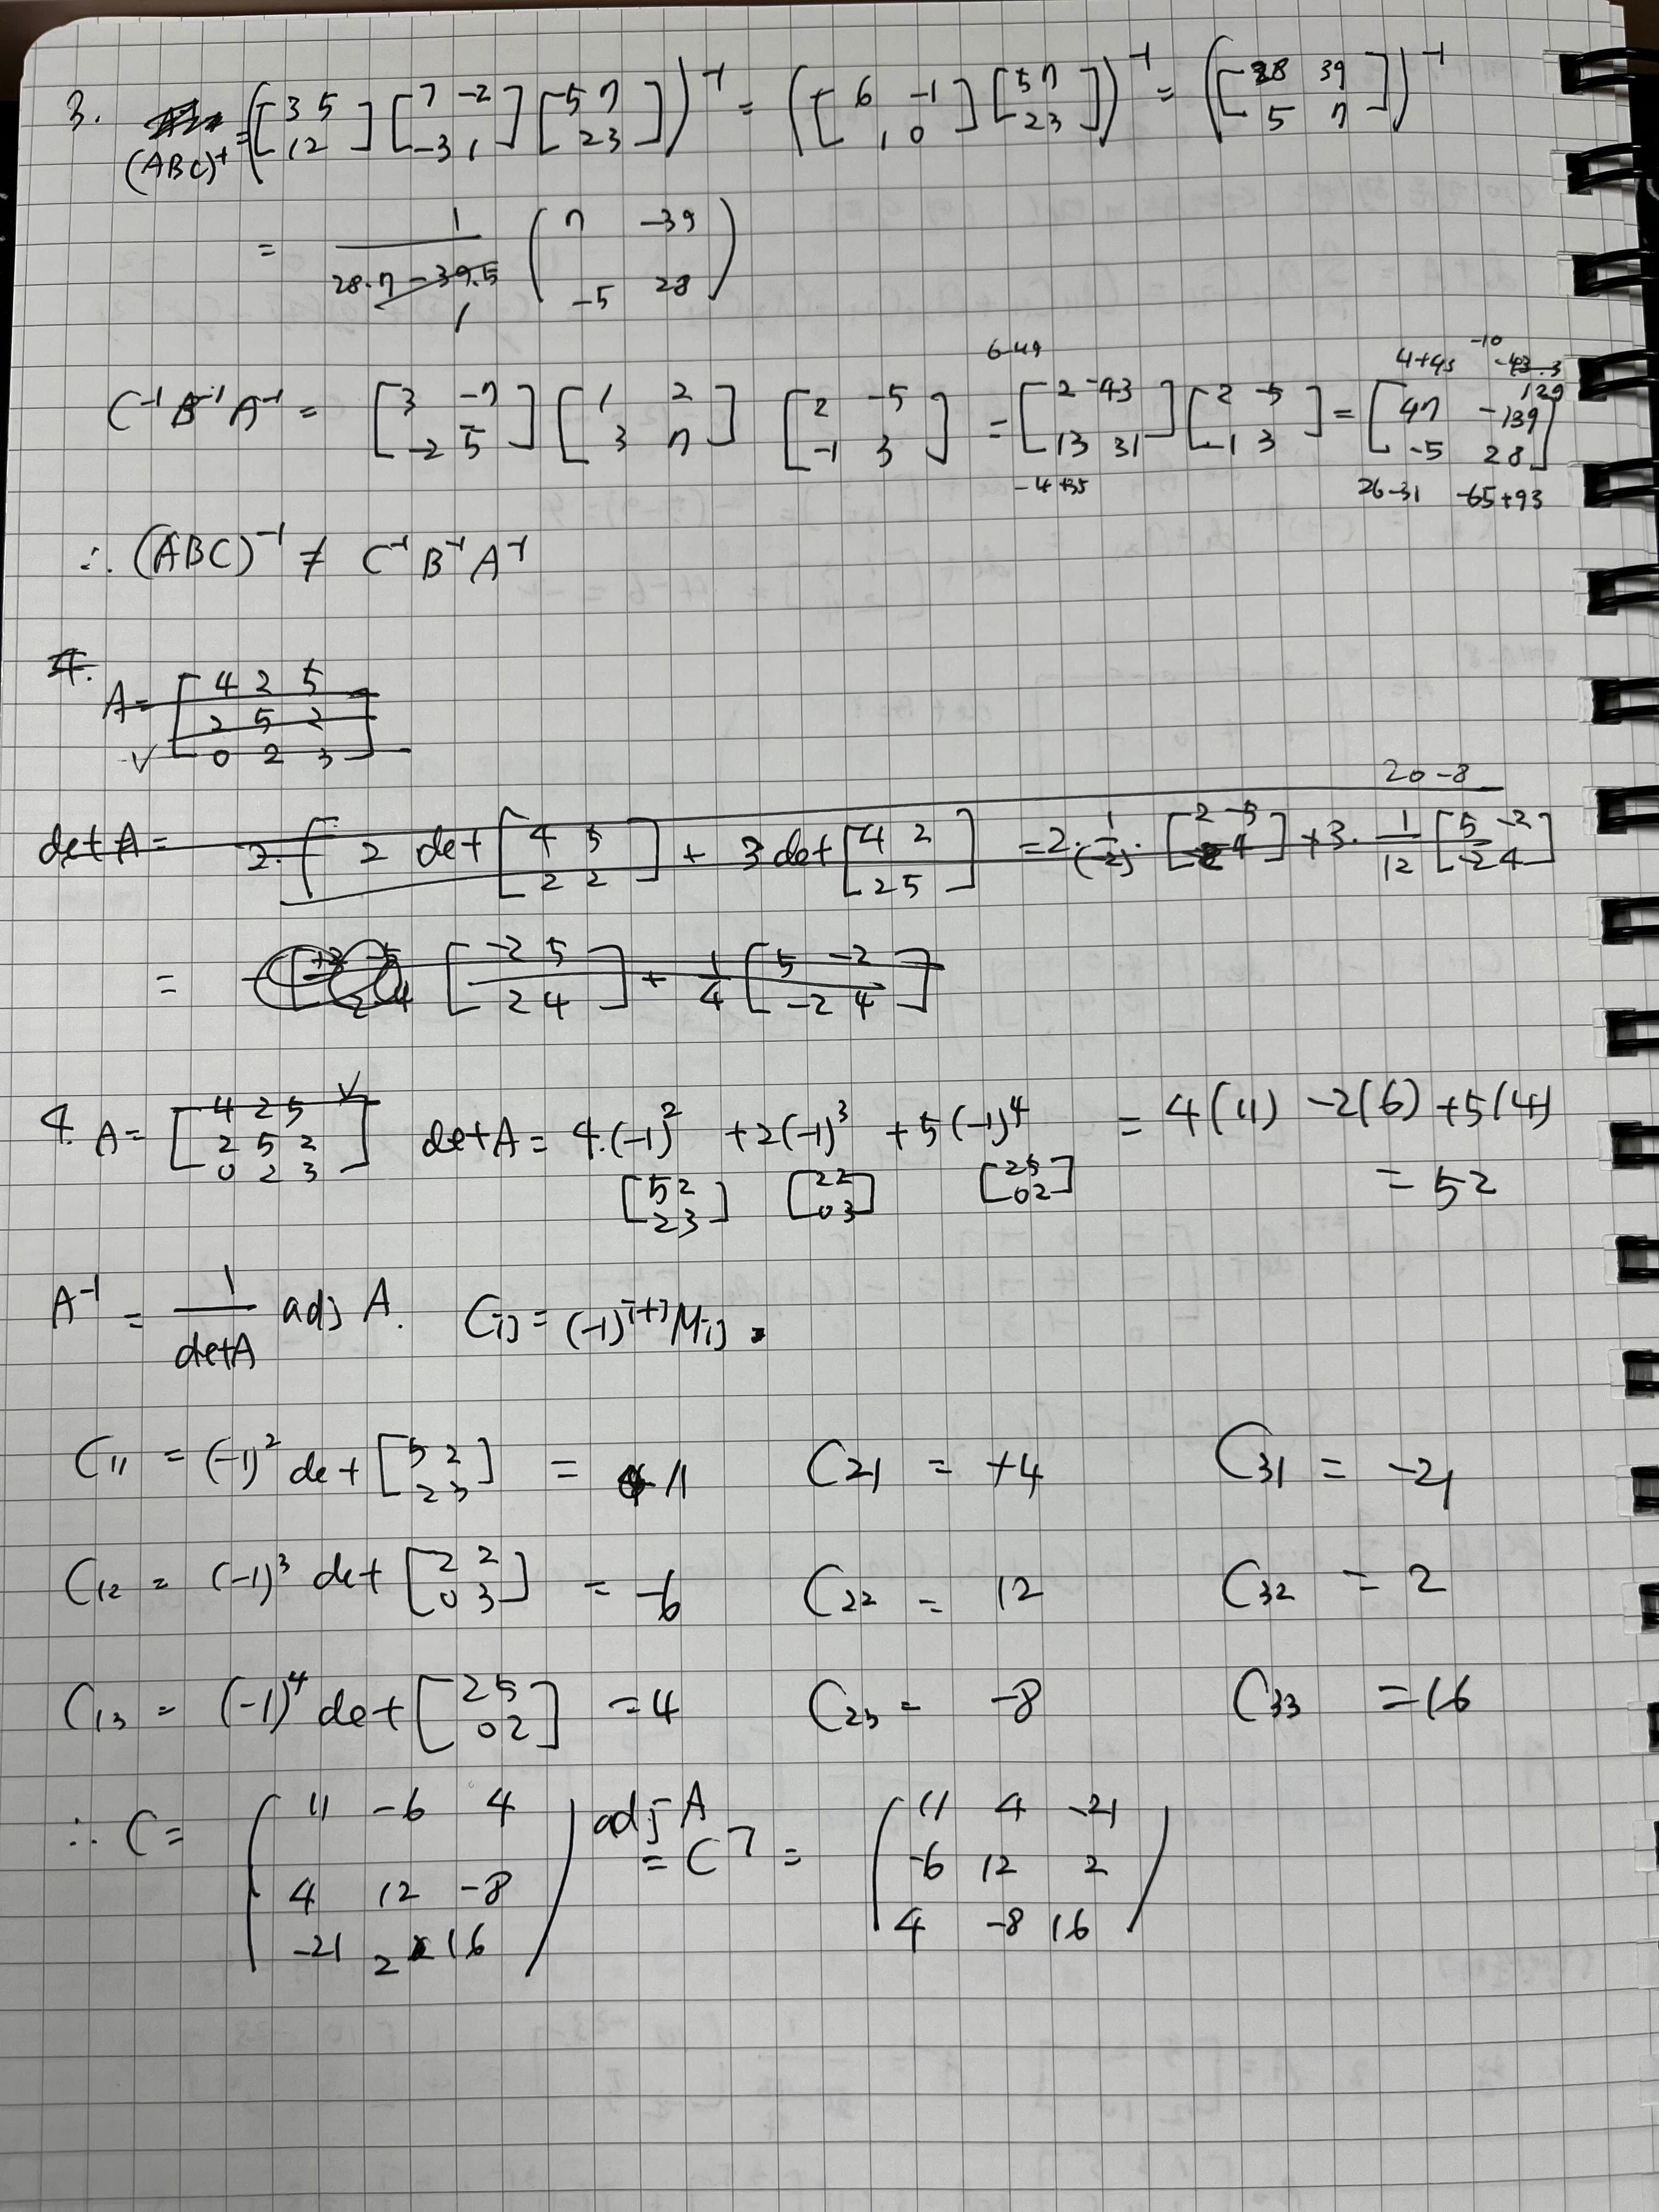 3. (ABC)⁻¹ = ([3 5; 1 2] [7 -2; -3 1] [5 7; 2 3])⁻¹ = ([6 -1; 1 0] [5 7; 2 3])⁻¹ = ([28 39; 5 7])⁻¹
= 1/(28·7-39·5) (7 -39; -5 28)
1
6-49 4+45 -10 -43·3
129
C⁻¹B⁻¹A⁻¹ = [3 -7; -2 5] [1 2; 3 7] [2 -5; -1 3] = [2 -43; 13 31] [2 -5; -1 3] = [47 -139; -5 28]
-4+35 26-31 -65+93
∴ (ABC)⁻¹ ≠ C⁻¹B⁻¹A⁻¹
4.
A= [4 2 5; 2 5 2; 0 2 3]
20-8
det A = 2 det [4 5; 2 2] + 3 det [4 2; 2 5] = 2· 1/(-2) · [2 -5; -2 4] + 3· 1/12 [5 -2; -2 4]
= [-2 5; 2 4] + 1/4 [5 -2; -2 4]
4. A= [4 2 5; 2 5 2; 0 2 3] det A = 4·(-1)² [5 2; 2 3] + 2(-1)³ [2 2; 0 3] + 5(-1)⁴ [2 5; 0 2] = 4(11) -2(6) +5(4)
= 52
A⁻¹ = 1/detA adj A. Cij = (-1)^i+j Mij.
C11 = (-1)² det [5 2; 2 3] = 11 C21 = +4 C31 = -21
C12 = (-1)³ det [2 2; 0 3] = -6 C22 = 12 C32 = 2
C13 = (-1)⁴ det [2 5; 0 2] = 4 C23 = -8 C33 = 16
∴ C = (11 -6 4; 4 12 -8; -21 2 16) adj A = Cᵀ = (11 4 -21; -6 12 2; 4 -8 16)